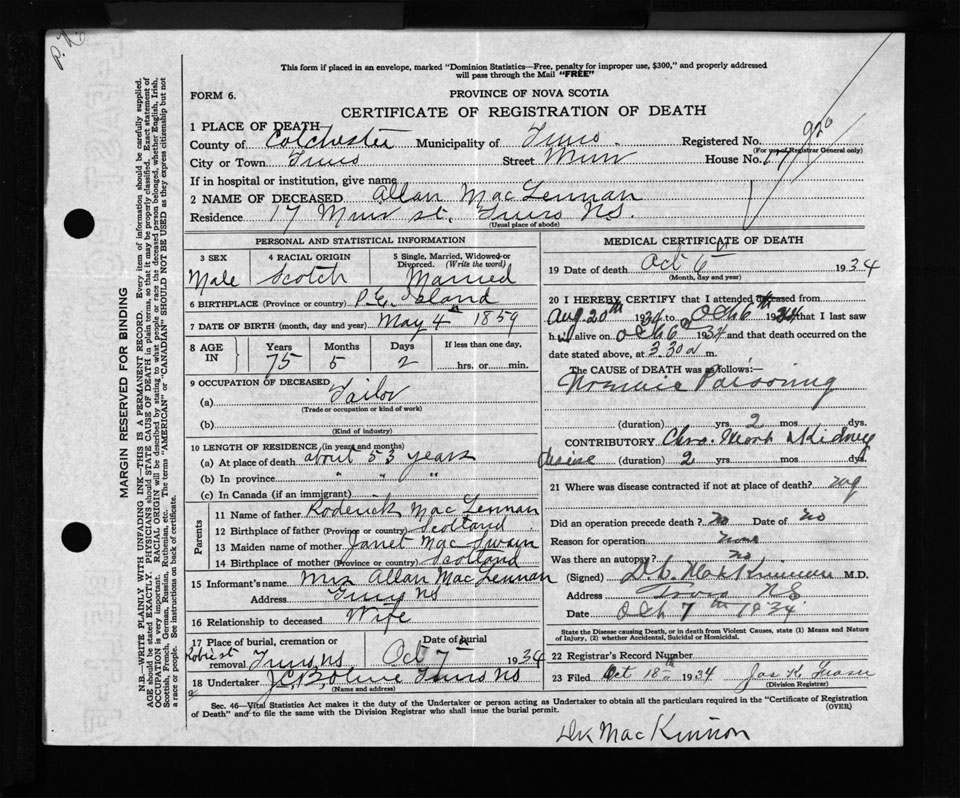 P.L.
This form if placed in an envelope, marked "Dominion Statistics—Free, penalty for improper use, $300," and properly addressed
will pass through the Mail "FREE"
FORM 6.
PROVINCE OF NOVA SCOTIA
CERTIFICATE OF REGISTRATION OF DEATH
1 PLACE OF DEATH
County of Colchester Municipality of Truro. Registered No. 920
(For use of Registrar General only)
City or Town Truro Street Muir House No. 17
If in hospital or institution, give name
2 NAME OF DECEASED Allan MacLennan
Residence 17 Muir st. Truro NS.
(Usual place of abode)
PERSONAL AND STATISTICAL INFORMATION
3 SEX 4 RACIAL ORIGIN 5 Single, Married, Widowed or Divorced. (Write the word)
Male Scotch Married
6 BIRTHPLACE (Province or country) P.E. Island
7 DATE OF BIRTH (month, day and year) May 4th 1859
8 AGE IN Years Months Days If less than one day,
75 5 2 hrs. or min.
9 OCCUPATION OF DECEASED
(a) Tailor
(Trade or occupation or kind of work)
(b)
(Kind of industry)
10 LENGTH OF RESIDENCE (in years and months)
(a) At place of death about 53 years
(b) In province " " "
(c) In Canada (if an immigrant)
Parents
11 Name of father Roderick MacLennan
12 Birthplace of father (Province or country) Scotland
13 Maiden name of mother Janet MacSwain
14 Birthplace of mother (Province or country) Scotland
15 Informant's name Mrs Allan MacLennan
Address Truro NS
16 Relationship to deceased Wife
17 Place of burial, cremation or removal Date of burial
Robie st Truro NS Oct 7th 1934
18 Undertaker J.C.B. Olive Truro NS
(Name and address)
MEDICAL CERTIFICATE OF DEATH
19 Date of death Oct 6th 1934
(Month, day and year)
20 I HEREBY CERTIFY that I attended deceased from
Aug 20th 1934 to Oct 6th 1934 that I last saw
him alive on Oct 6th 1934 and that death occurred on the
date stated above, at 3.30 a m.
The CAUSE OF DEATH was as follows:—
Uraemic Poisoning
(duration) yrs 2 mos dys.
CONTRIBUTORY Chro. Heart & Kidney
disease (duration) 2 yrs mos dys.
21 Where was disease contracted if not at place of death?
Did an operation precede death? No Date of No
Reason for operation None
Was there an autopsy? No
(Signed) MacKinnon M.D.
Address Truro NS
Date Oct 7th 1934
State the Disease causing Death, or in death from Violent Causes, state (1) Means and Nature
of Injury, (2) whether Accidental, Suicidal or Homicidal.
22 Registrar's Record Number
23 Filed Oct 18th 1934 Jas K. Fraser
(Division Registrar)
Sec. 46—Vital Statistics Act makes it duty of the Undertaker or person acting as Undertaker to obtain all the particulars required in the "Certificate of Registration
of Death" and to file the same with the Division Registrar who shall issue the burial permit. (OVER)
Dr MacKinnon
MARGIN RESERVED FOR BINDING
N.B.—WRITE PLAINLY WITH UNFADING INK—THIS IS A PERMANENT RECORD. Every item of information should be carefully supplied.
AGE should be stated EXACTLY. PHYSICIANS should STATE CAUSE OF DEATH in plain terms, so that it may be properly classified. Exact statement of
OCCUPATION is very important. RACIAL ORIGIN will be described by stating to what people or race the deceased person belonged, whether English, Irish,
Scottish, French, German, Russian, Ruthenian, etc. The terms "AMERICAN" or "CANADIAN" SHOULD NOT BE USED as they express citizenship but not
a race or people. See instructions on back of certificate.